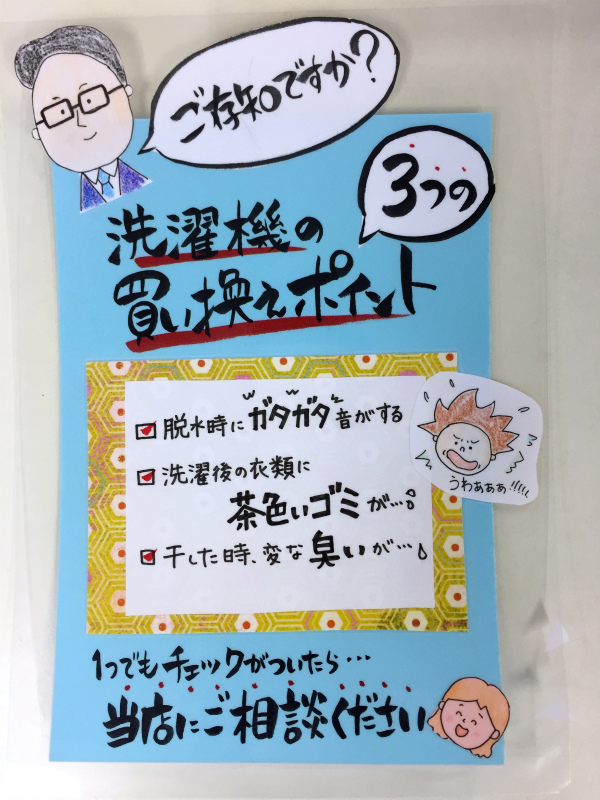 ご存知ですか?
3つの
洗濯機の
買い換えポイント
脱水時にガタガタ音がする
洗濯後の衣類に
茶色いゴミが…
干した時、変な臭いが…
うわぁぁぁ!!!!!
1つでもチェックがついたら…
当店にご相談ください